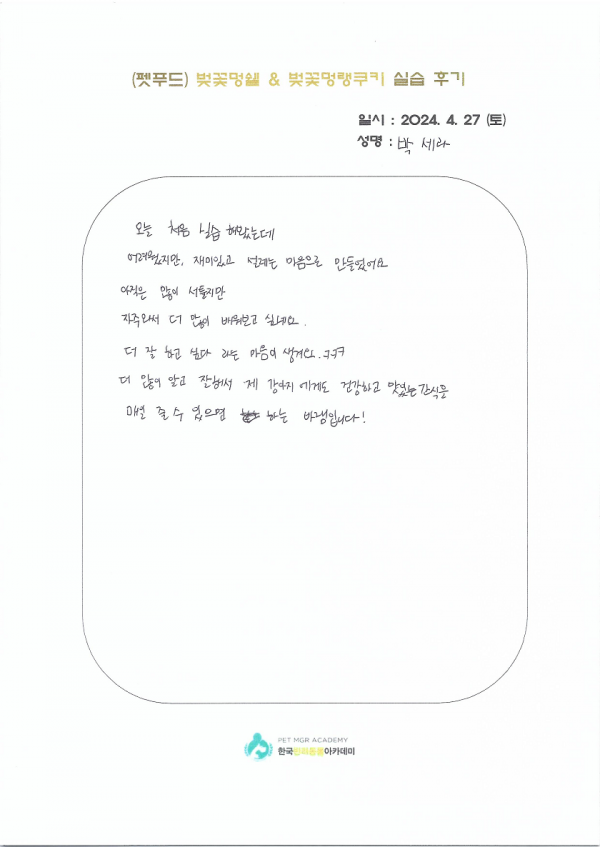 (펫푸드) 벚꽃멍쉘 & 벚꽃멍랭쿠키 실습 후기
일시 : 2024. 4. 27 (토)
성명 : 박 세라
오늘 처음 실습 해봤는데
어려웠지만, 재미있고 설레는 마음으로 만들었어요
아직은 많이 서툴지만
자주와서 더 많이 배워보고 싶네요.
더 잘 하고 싶다 라는 마음이 생겨요. ㅋㅋㅋ
더 많이 알고 잘해서 제 강아지에게도 건강하고 맛있는 간식을
매일 줄 수 있으면 하는 바램입니다!
PET MGR ACADEMY
한국반려동물아카데미